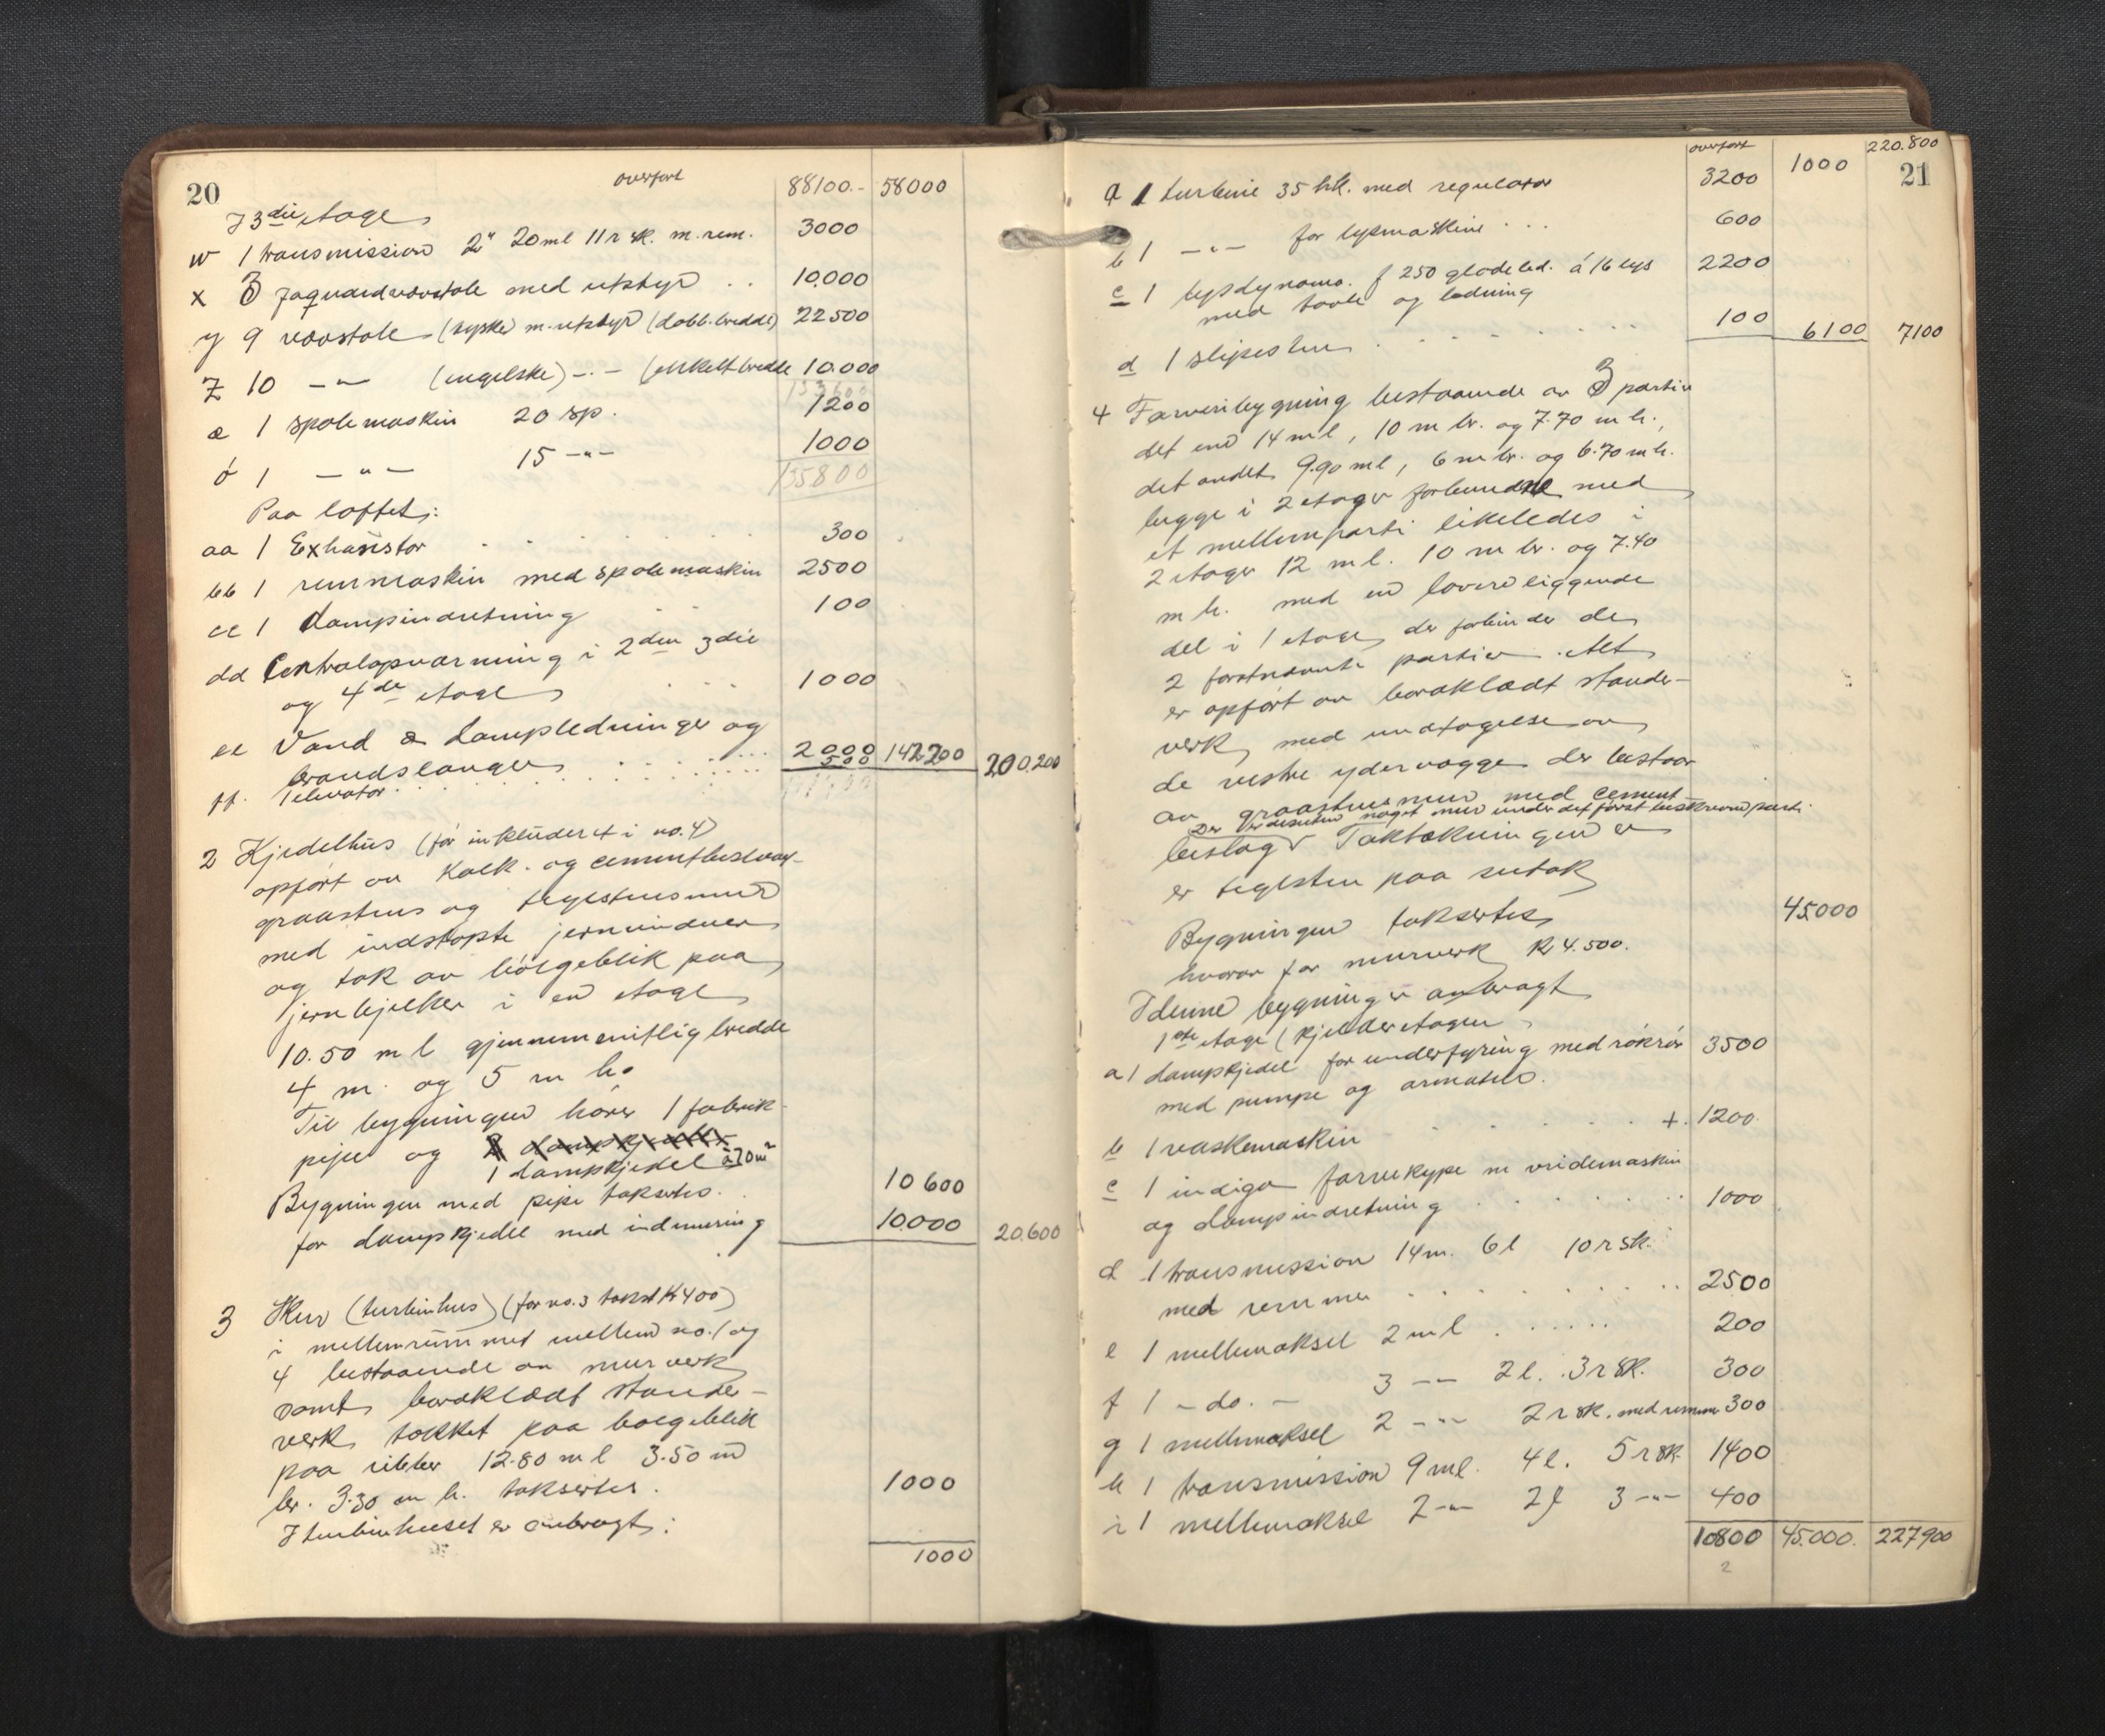 20
overført 88100.- 58000
I 3die etage
w 1 transmission 2" 20 m l 11 r sk. m. rem. 3000
x 3 jaquardvævstole med utstyr . . 10.000
y 9 vævstole (tyske) m. utstyr (dobb. bredde) 22500
z 10 -"- (engelske) -"- (enkelt bredde 10.000
æ 1 spolemaskin 20 sp. 1200
ø 1 -"- 15 -"- 1000
135800
Paa loftet:
aa 1 Exhaustor 300
bb 1 rennmaskin med spolemaskin 2500
cc 1 dampindretning 100
dd Centralopvarming i 2den 3die
og 4de etage 1000
ee Vand & dampledninger og
brandslanger 2000 142200 200.200
ff. 1 elevator 500
2 Kjedelhus (før inkluderet i no. 4)
opført av kalk- og cementbestrøket
graastens og teglstensmur
med indstøpte jernvinduer
og tak av bølgeblik paa
jernbjelker i en etage
10.50 m l gjennemsnitlig bredde
4 m. og 5 m h.
Til bygningen hører 1 fabrik-
pipe og 2 dampkjedler
1 dampkjedel à 70 m²
Bygningen med pipe takseres. 10600
for dampkjedel med indmuring 10.000 20.600
3 Skur (turbinhus) (før no. 3 takst Kr 400)
i mellemrummet mellem no. 1 og
4 bestaaende av murverk
samt bordklædt stander-
verk tækket paa bølgeblik
paa ribber 12.80 m l 3.50 m
br. 3.30 m h. takseres. 1000
I turbinhuset er anbragt:
1000
overført 220.800
21
3200 1000
a 1 turbine 35 hk. med regulator
b 1 -"- for lysmaskine . . . 600
c 1 lysdynamo f 250 glødeled. á 16 lys 2200
med tavle og ledning
d 1 slipesten 100 6100 7100
4 Farveribygning bestaaende av 3 partier
det ene 14 m l, 10 m br. og 7.70 m h.,
det andet 9.90 m l, 6 m br. og 6.70 m h.
begge i 2 etager forbundne med
et mellemparti likeledes i
2 etager 12 m l. 10 m br. og 7.40
m h. med en lavereliggende
del i 1 etage der forbinder de
2 førstnævnte partier. Alt
er opført av bordklædt stander-
verk med undtagelse av
de vestre ydervægge der bestaar
av graastensmur med cement-
Der er desuten noget mur under det først beskrevne parti.
beslag. Taktækningen er
er teglsten paa sutak
Bygningen takseres 45.000
hvorav for murverk Kr 4.500.
I denne bygning er anbragt
1ste etage (kjelderetagen
a 1 dampkjedel for underfyring med røkrør 3500
med pumpe og armatur.
b 1 vaskemaskin +. 1200.
c 1 indigo farvekype m vridemaskin
og dampindretning 1000
d 1 transmission 14 m. 6 l 10 r sk.
med remmer 2500
e 1 mellemaksel 2 m l 200
f 1 - do. - 3 -"- 2 l. 3 r sk. 300
g 1 mellemaksel 2 -"- 2 r sk. med remmer 300
h 1 transmission 9 m l. 4 l. 5 r sk 1400
i 1 mellemaksel 2 -"- 2 l 3 -"- 400
10800 45.000. 227900
2